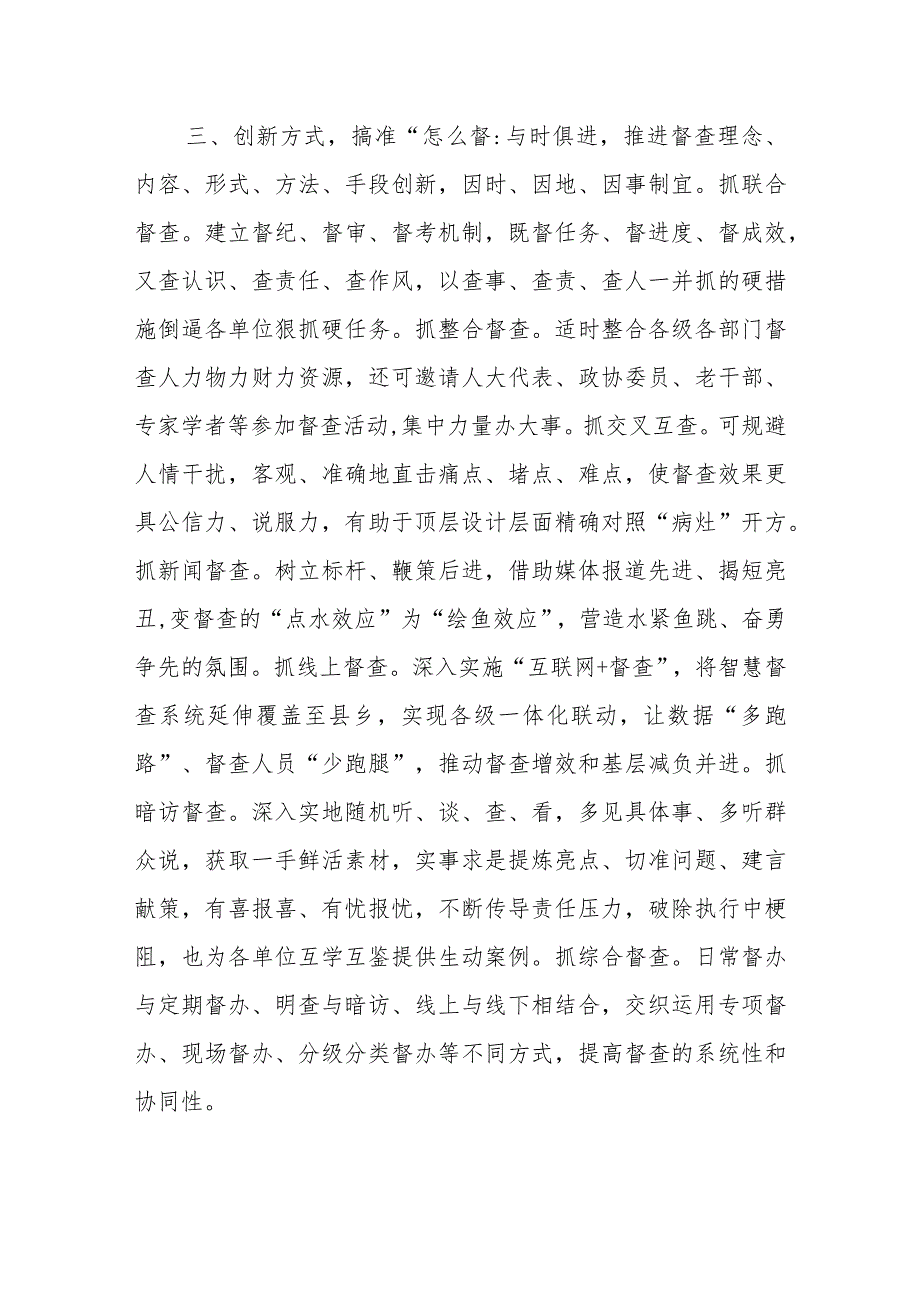 三、创新方式，搞准“怎么督:与时俱进，推进督查理念、
内容、形式、方法、手段创新，因时、因地、因事制宜。抓联合
督查。建立督纪、督审、督考机制，既督任务、督进度、督成效，
又查认识、查责任、查作风，以查事、查责、查人一并抓的硬措
施倒逼各单位狠抓硬任务。抓整合督查。适时整合各级各部门督
查人力物力财力资源，还可邀请人大代表、政协委员、老干部、
专家学者等参加督查活动,集中力量办大事。抓交叉互查。可规避
人情干扰，客观、准确地直击痛点、堵点、难点，使督查效果更
具公信力、说服力，有助于顶层设计层面精确对照“病灶”开方。
抓新闻督查。树立标杆、鞭策后进，借助媒体报道先进、揭短亮
丑,变督查的“点水效应”为“绘鱼效应”，营造水紧鱼跳、奋勇
争先的氛围。抓线上督查。深入实施“互联网+督查”，将智慧督
查系统延伸覆盖至县乡，实现各级一体化联动，让数据“多跑
路”、督查人员“少跑腿”，推动督查增效和基层减负并进。抓
暗访督查。深入实地随机听、谈、查、看，多见具体事、多听群
众说，获取一手鲜活素材，实事求是提炼亮点、切准问题、建言
献策，有喜报喜、有忧报忧，不断传导责任压力，破除执行中梗
阻，也为各单位互学互鉴提供生动案例。抓综合督查。日常督办
与定期督办、明查与暗访、线上与线下相结合，交织运用专项督
办、现场督办、分级分类督办等不同方式，提高督查的系统性和
协同性。